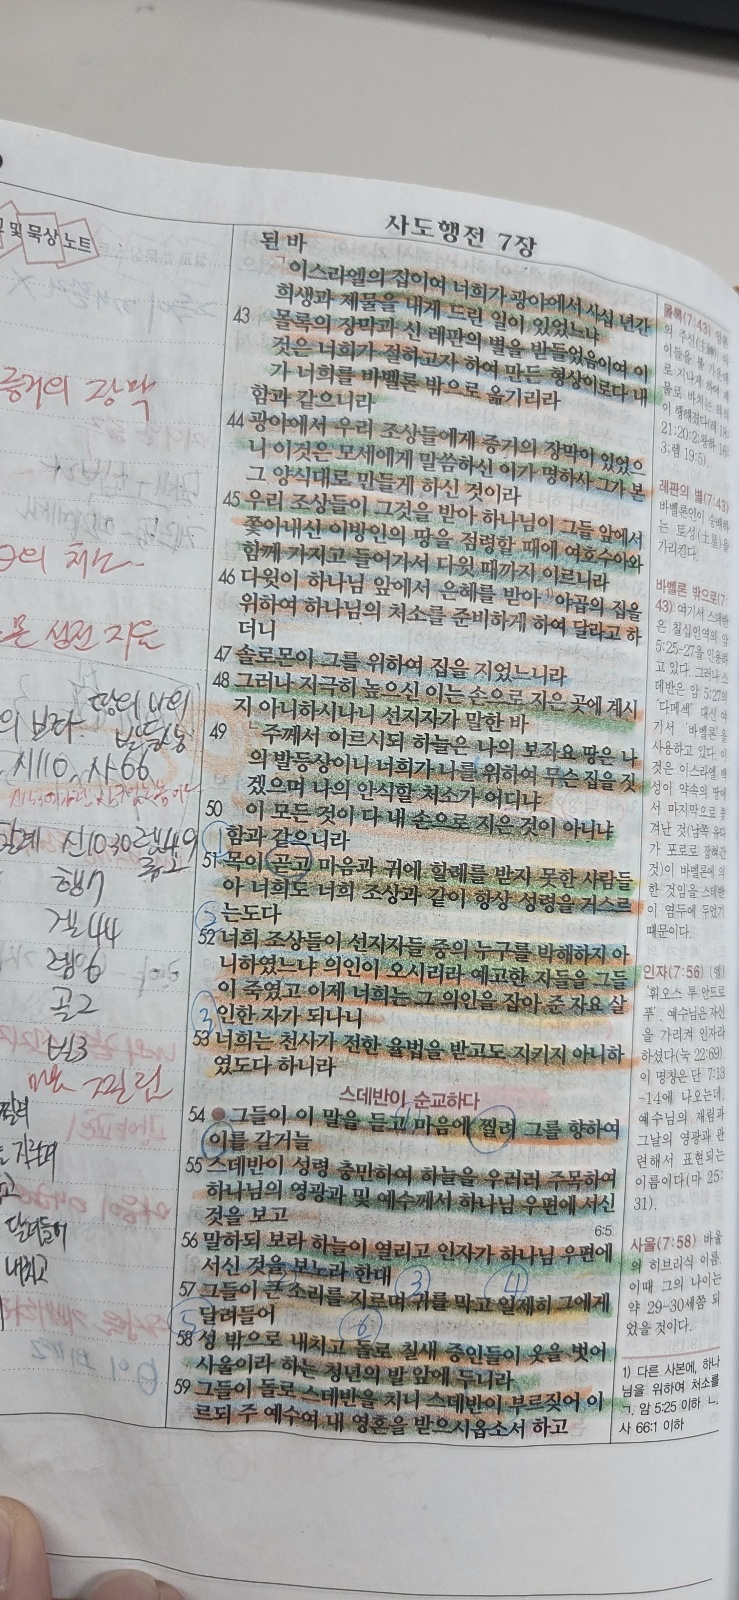 및 묵상 노트
사도행전 7장
된 바
「이스라엘의 집이여 너희가 광야에서 사십 년간
희생과 제물을 내게 드린 일이 있었느냐
43 몰록의 장막과 신 레판의 별을 받들었음이여 이
것은 너희가 절하고자 하여 만든 형상이로다 내
가 너희를 바벨론 밖으로 옮기리라
함과 같으니라
44 광야에서 우리 조상들에게 증거의 장막이 있었으
니 이것은 모세에게 말씀하신 이가 명하사 그가 본
그 양식대로 만들게 하신 것이라
45 우리 조상들이 그것을 받아 하나님이 그들 앞에서
쫓아내신 이방인의 땅을 점령할 때에 여호수아와
함께 가지고 들어가서 다윗 때까지 이르니라
46 다윗이 하나님 앞에서 은혜를 받아 1)야곱의 집을
위하여 하나님의 처소를 준비하게 하여 달라고 하
더니
47 솔로몬이 그를 위하여 집을 지었느니라
48 그러나 지극히 높으신 이는 손으로 지은 곳에 계시
지 아니하시나니 선지자가 말한 바
49 「주께서 이르시되 하늘은 나의 보좌요 땅은 나
의 발등상이니 너희가 나를 위하여 무슨 집을 짓
겠으며 나의 안식할 처소가 어디냐
50 이 모든 것이 다 내 손으로 지은 것이 아니냐
함과 같으니라
51 목이 곧고 마음과 귀에 할례를 받지 못한 사람들
아 너희도 너희 조상과 같이 항상 성령을 거스르
는도다
52 너희 조상들이 선지자들 중의 누구를 박해하지 아
니하였느냐 의인이 오시리라 예고한 자들을 그들
이 죽였고 이제 너희는 그 의인을 잡아 준 자요 살
인한 자가 되나니
53 너희는 천사가 전한 율법을 받고도 지키지 아니하
였도다 하니라
스데반이 순교하다
54 그들이 이 말을 듣고 마음에 찔려 그를 향하여
이를 갈거늘
55 스데반이 성령 충만하여 하늘을 우러러 주목하여
하나님의 영광과 및 예수께서 하나님 우편에 서신
것을 보고
6:5
56 말하되 보라 하늘이 열리고 인자가 하나님 우편에
서신 것을 보노라 한대
57 그들이 큰 소리를 지르며 귀를 막고 일제히 그에게
달려들어
58 성 밖으로 내치고 돌로 칠새 증인들이 옷을 벗어
사울이라 하는 청년의 발 앞에 두니라
59 그들이 돌로 스데반을 치니 스데반이 부르짖어 이
르되 주 예수여 내 영혼을 받으시옵소서 하고
증거의 장막
성전 지음
땅의 나의
보좌 발등상
시110, 사66
신10:30 렘4,9
행7
겔44
렘9
골2
빌3
마음 찔림
찔려
달려들어
내치고
몰록(7:43)
21; 20:2; 왕하 16:
3; 렘 19:5)
레판의 별(7:43)
바벨론인이 숭배하
는 토성(土星)을
가리킨다.
바벨론 밖으로(7:
43) 여기서 스데반
은 칠십인역의 암
5:25-27을 인용하
고 있다. 그러나 스
데반은 암 5:27의
'다메섹' 대신 여
기서 '바벨론'을
사용하고 있다. 이
것은 이스라엘 백
성이 약속의 땅에
서 마지막으로 쫓
겨난 것(남쪽 유다
가 포로로 잡혀간
것)이 바벨론에 의
한 것임을 스데반
이 염두에 두었기
때문이다.
인자(7:56) (헬)
'휘오스 투 안드로
푸'. 예수님은 자신
을 가리켜 인자라
하셨다(눅 22:69).
이 명칭은 단 7:13
-14에 나오는데,
예수님의 재림과
그날의 영광과 관
련해서 표현되는
이름이다(마 25:
31).
사울(7:58) 바울
의 히브리식 이름.
이때 그의 나이는
약 29-30세쯤 되
었을 것이다.
1) 다른 사본에, 하나
님을 위하여 처소를
ㄱ. 암 5:25 이하 ㄴ.
사 66:1 이하